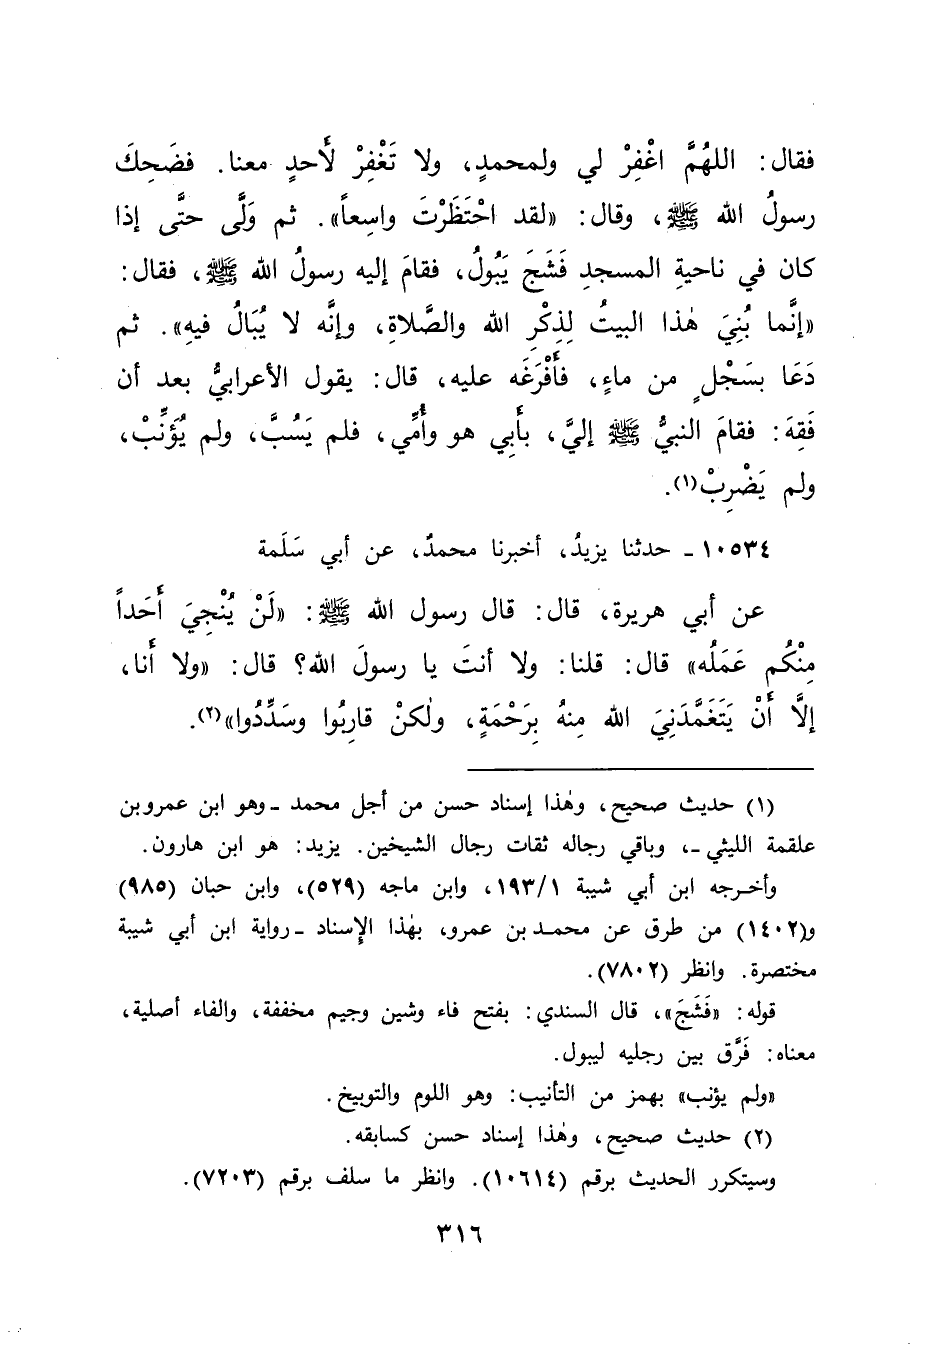 فقال: اللهُمَّ اغْفِرْ لي ولمحمدٍ، ولا تَغْفِرْ لأَحدٍ معنا. فضَحِكَ
رسولُ الله ﷺ، وقال: «لقد احْتَظَرْتَ واسِعاً». ثم وَلَّى حتَّى إذا
كان في ناحيةِ المسجدِ فَشَجَ يَبُولُ، فقامَ إليه رسولُ الله ﷺ، فقال:
«إنَّما بُنِيَ هٰذا البيتُ لِذِكْرِ الله والصَّلاةِ، وإنَّه لا يُبَالُ فيهِ». ثم
دَعَا بسَجْلٍ من ماءٍ، فأَفْرَغَه عليه، قال: يقول الأعرابيُّ بعد أن
فَقِهَ: فقامَ النبيُّ ﷺ إليَّ، بأَبِي هو وأُمِّي، فلم يَسُبَّ، ولم يُؤَنِّبْ،
ولم يَضْرِبْ(١).
١٠٥٣٤ ـ حدثنا يزيدُ، أخبرنا محمدٌ، عن أبي سَلَمة
عن أبي هريرة، قال: قال رسول الله ﷺ: «لَنْ يُنْجِيَ أَحَداً
مِنْكُم عَمَلُه» قال: قلنا: ولا أنتَ يا رسولَ الله؟ قال: «ولا أَنا،
إلَّا أَنْ يَتَغَمَّدَنِيَ الله مِنهُ بِرَحْمَةٍ، ولٰكنْ قارِبُوا وسَدِّدُوا»(٢).
(١) حديث صحيح، وهٰذا إسناد حسن من أجل محمد ـ وهو ابن عمرو بن
علقمة الليثي ـ، وباقي رجاله ثقات رجال الشيخين. يزيد: هو ابن هارون.
وأخرجه ابن أبي شيبة ١٩٣/١، وابن ماجه (٥٢٩)، وابن حبان (٩٨٥)
و(١٤٠٢) من طرق عن محمد بن عمرو، بهٰذا الإسناد ـ رواية ابن أبي شيبة
مختصرة. وانظر (٧٨٠٢).
قوله: «فَشَجَ»، قال السندي: بفتح فاء وشين وجيم مخففة، والفاء أصلية،
معناه: فَرَّق بين رجليه ليبول.
«ولم يؤنب» بهمز من التأنيب: وهو اللوم والتوبيخ.
(٢) حديث صحيح، وهٰذا إسناد حسن كسابقه.
وسيتكرر الحديث برقم (١٠٦١٤). وانظر ما سلف برقم (٧٢٠٣).
٣١٦